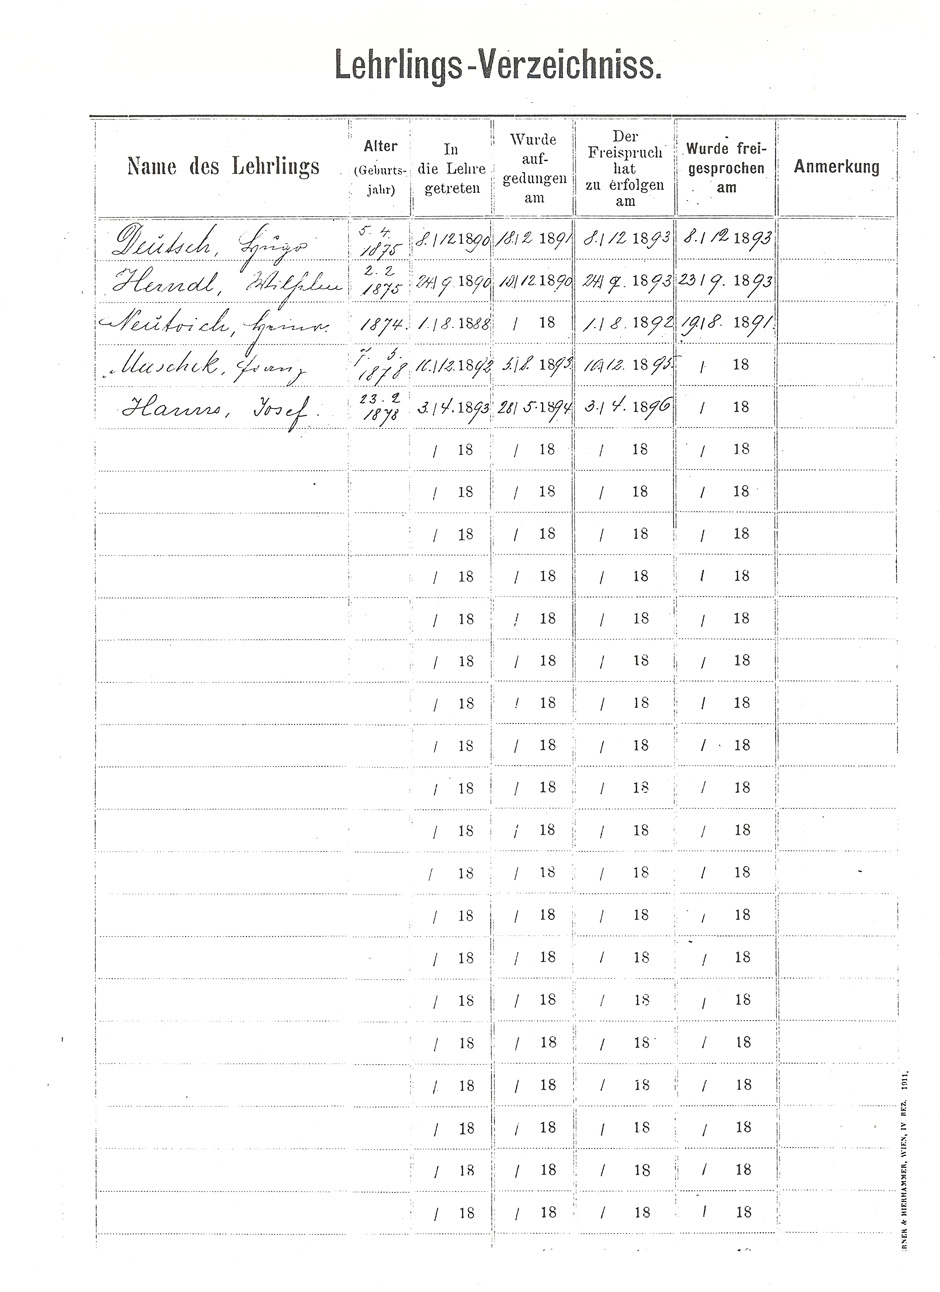 Lehrlings-Verzeichniss.
Name des Lehrlings Alter (Geburts-jahr) In die Lehre getreten Wurde auf-gedungen am Der Freispruch hat zu erfolgen am Wurde frei-gesprochen am Anmerkung
Deutsch, Hugo 5. 4. 1875 8./12 1890 18/2 1891 8./12 1893 8./12 1893
Herndl, 2. 2 1875 24/9 1890 10/12 1890 24/9. 1893 23/9. 1893
1874. 1./8. 1888 / 18 1./8. 1892 19/8. 1891.
Muschek, Franz 1878 10./12. 1892 5./8. 1893 10/12. 1895. / 18
Hanns, Josef. 23. 2 1878 3./4. 1893 28/5. 1894 3./4. 1896 / 18
/ 18 / 18 / 18 / 18
/ 18 / 18 / 18 / 18
/ 18 / 18 / 18 / 18
/ 18 / 18 / 18 / 18
/ 18 / 18 / 18 / 18
/ 18 / 18 / 18 / 18
/ 18 / 18 / 18 / 18
/ 18 / 18 / 18 / 18
/ 18 / 18 / 18 / 18
/ 18 / 18 / 18 / 18
/ 18 / 18 / 18 / 18
/ 18 / 18 / 18 / 18
/ 18 / 18 / 18 / 18
/ 18 / 18 / 18 / 18
/ 18 / 18 / 18 / 18
/ 18 / 18 / 18 / 18
/ 18 / 18 / 18 / 18
/ 18 / 18 / 18 / 18
/ 18 / 18 / 18 / 18
RNER & HIERHAMMER, WIEN, IV BEZ. 1911.